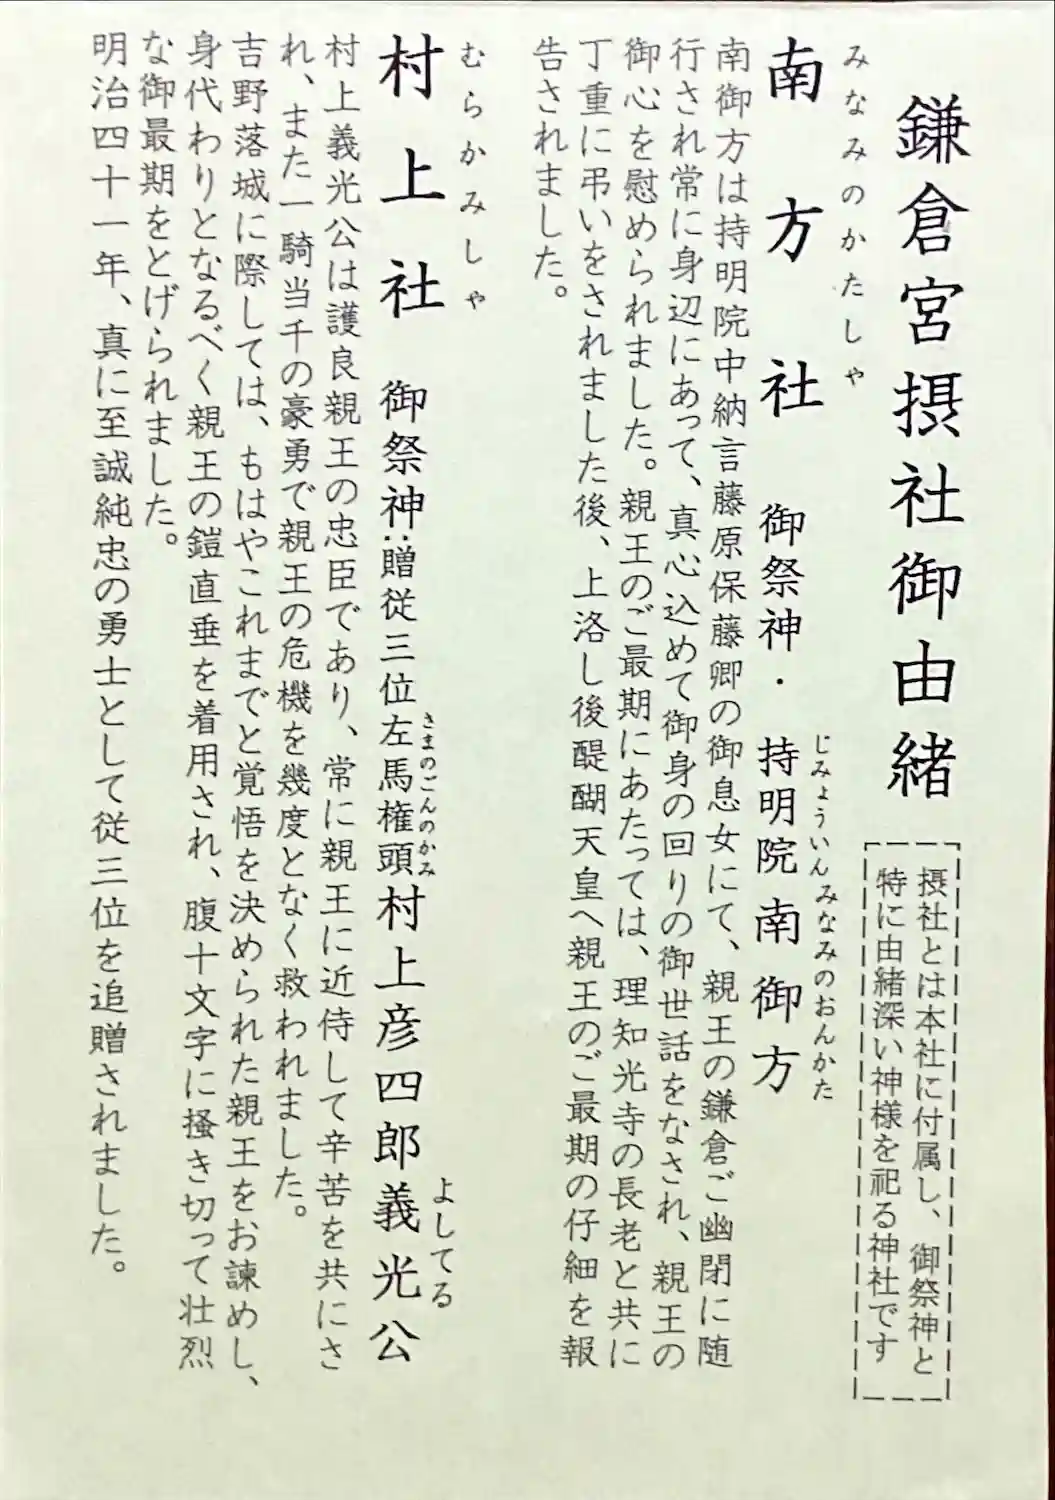 鎌倉宮摂社御由緒
摂社とは本社に付属し、御祭神と
特に由緒深い神様を祀る神社です
みなみのかたしゃ
南方社 御祭神・持明院南御方
じみょういんみなみのおんかた
南御方は持明院中納言藤原保藤卿の御息女にて、親王の鎌倉ご幽閉に随
行され常に身辺にあって、真心込めて御身の回りの御世話をなされ、親王の
御心を慰められました。親王のご最期にあたっては、理知光寺の長老と共に
丁重に弔いをされました後、上洛し後醍醐天皇へ親王のご最期の仔細を報
告されました。
むらかみしゃ
村上社 御祭神:贈従三位左馬権頭村上彦四郎義光公
さまのごんのかみ
よしてる
村上義光公は護良親王の忠臣であり、常に親王に近侍して辛苦を共にさ
れ、また一騎当千の豪勇で親王の危機を幾度となく救われました。
吉野落城に際しては、もはやこれまでと覚悟を決められた親王をお諫めし、
身代わりとなるべく親王の鎧直垂を着用され、腹十文字に掻き切って壮烈
な御最期をとげられました。
明治四十一年、真に至誠純忠の勇士として従三位を追贈されました。